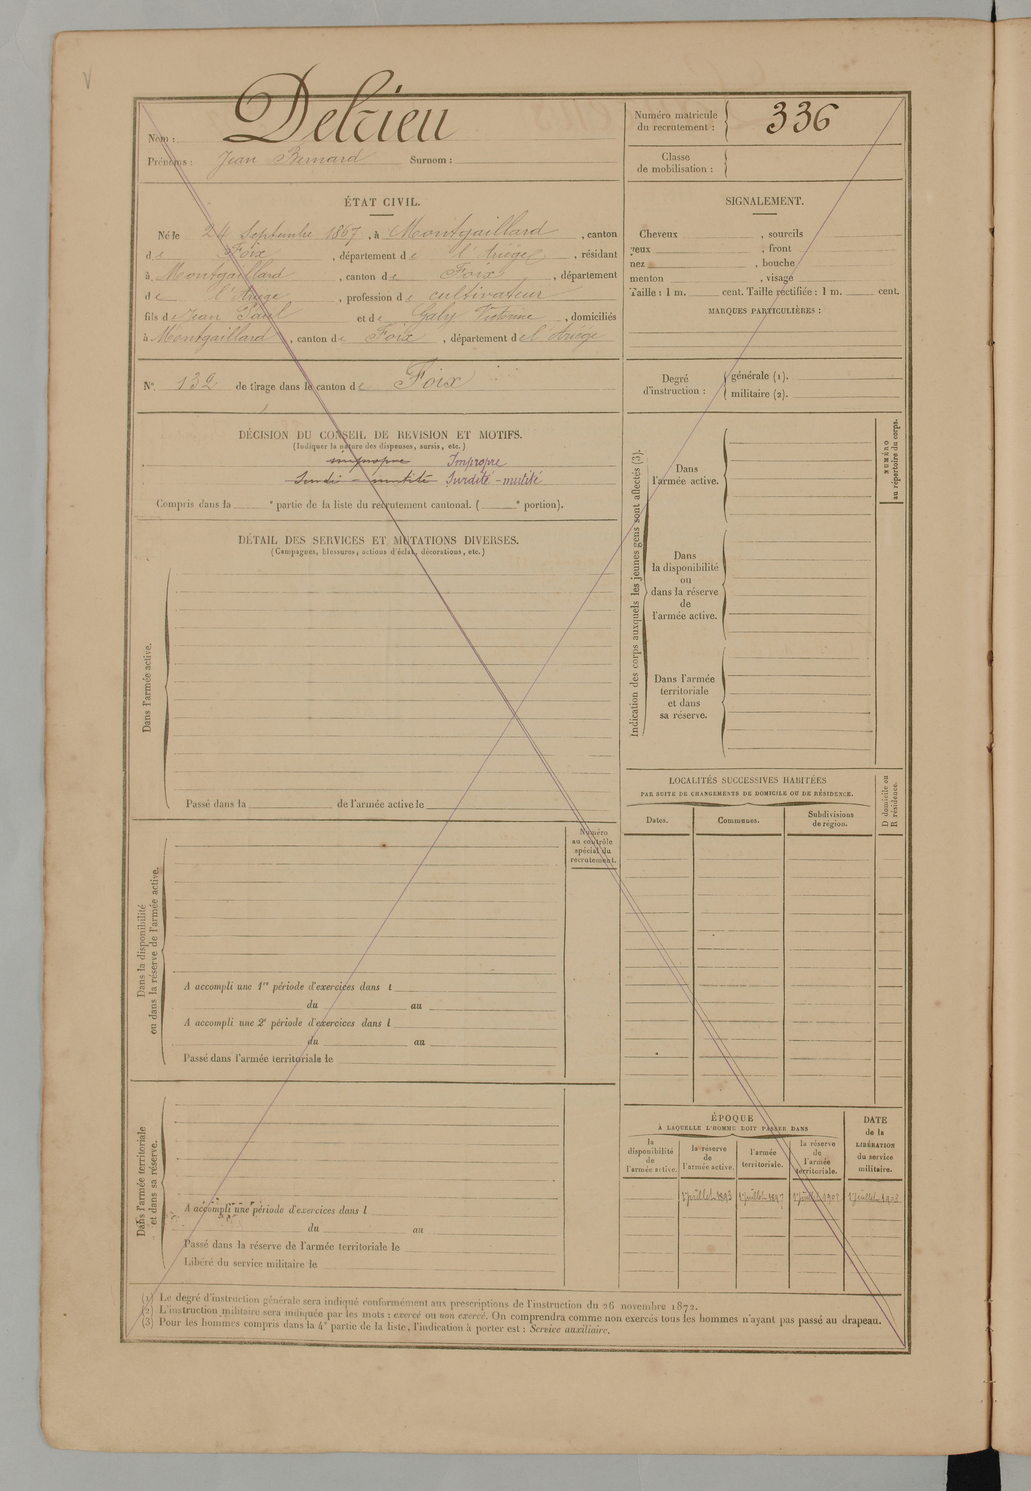 Nom : Delrieu
Prénoms : Jean Bernard Surnom :
Numéro matricule du recrutement : 336
Classe de mobilisation :
ÉTAT CIVIL.
Né le 24 Septembre 1867, à Montgaillard, canton
de Foix, département de l'Ariège, résidant
à Montgaillard, canton de Foix, département
de l'Ariège, profession de cultivateur
fils de Jean Paul et de Galy Victorine, domiciliés
à Montgaillard, canton de Foix, département de l'Ariège
N° 132 de tirage dans le canton de Foix
SIGNALEMENT.
Cheveux , sourcils
yeux , front
nez , bouche
menton , visage
Taille : 1 m. cent. Taille rectifiée : 1 m. cent.
MARQUES PARTICULIÈRES :
Degré d'instruction :
générale (1).
militaire (2).
DÉCISION DU CONSEIL DE REVISION ET MOTIFS.
(Indiquer la nature des dispenses, sursis, etc.)
impropre Impropre
Surdi-mutité Surdité-mutité
Compris dans la e partie de la liste du recrutement cantonal. ( e portion).
DÉTAIL DES SERVICES ET MUTATIONS DIVERSES.
(Campagnes, blessures, actions d'éclat, décorations, etc.)
Dans l'armée active.
Passé dans la de l'armée active le
Indication des corps auxquels les jeunes gens sont affectés (3).
Dans l'armée active.
Dans la disponibilité ou dans la réserve de l'armée active.
Dans l'armée territoriale et dans sa réserve.
NUMÉRO au répertoire du corps.
LOCALITÉS SUCCESSIVES HABITÉES
PAR SUITE DE CHANGEMENTS DE DOMICILE OU DE RÉSIDENCE.
D domicile ou R résidence.
Dates. Communes. Subdivisions de région.
Numéro au contrôle spécial du recrutement.
Dans la disponibilité ou dans la réserve de l'armée active.
A accompli une 1re période d'exercices dans l
du au
A accompli une 2e période d'exercices dans l
du au
Passé dans l'armée territoriale le
Dans l'armée territoriale et dans sa réserve.
A accompli une période d'exercices dans l
du au
Passé dans la réserve de l'armée territoriale le
Libéré du service militaire le
ÉPOQUE
À LAQUELLE L'HOMME DOIT PASSER DANS
la disponibilité de l'armée active.
la réserve de l'armée active.
l'armée territoriale.
la réserve de l'armée territoriale.
DATE de la LIBÉRATION du service militaire.
1 juillet 1893 1 juillet 1897 1 juillet 1902 1 Juillet 1908
(1) Le degré d'instruction générale sera indiqué conformément aux prescriptions de l'instruction du 26 novembre 1872.
(2) L'instruction militaire sera indiquée par les mots : exercé ou non exercé. On comprendra comme non exercés tous les hommes n'ayant pas passé au drapeau.
(3) Pour les hommes compris dans la 4e partie de la liste, l'indication à porter est : Service auxiliaire.